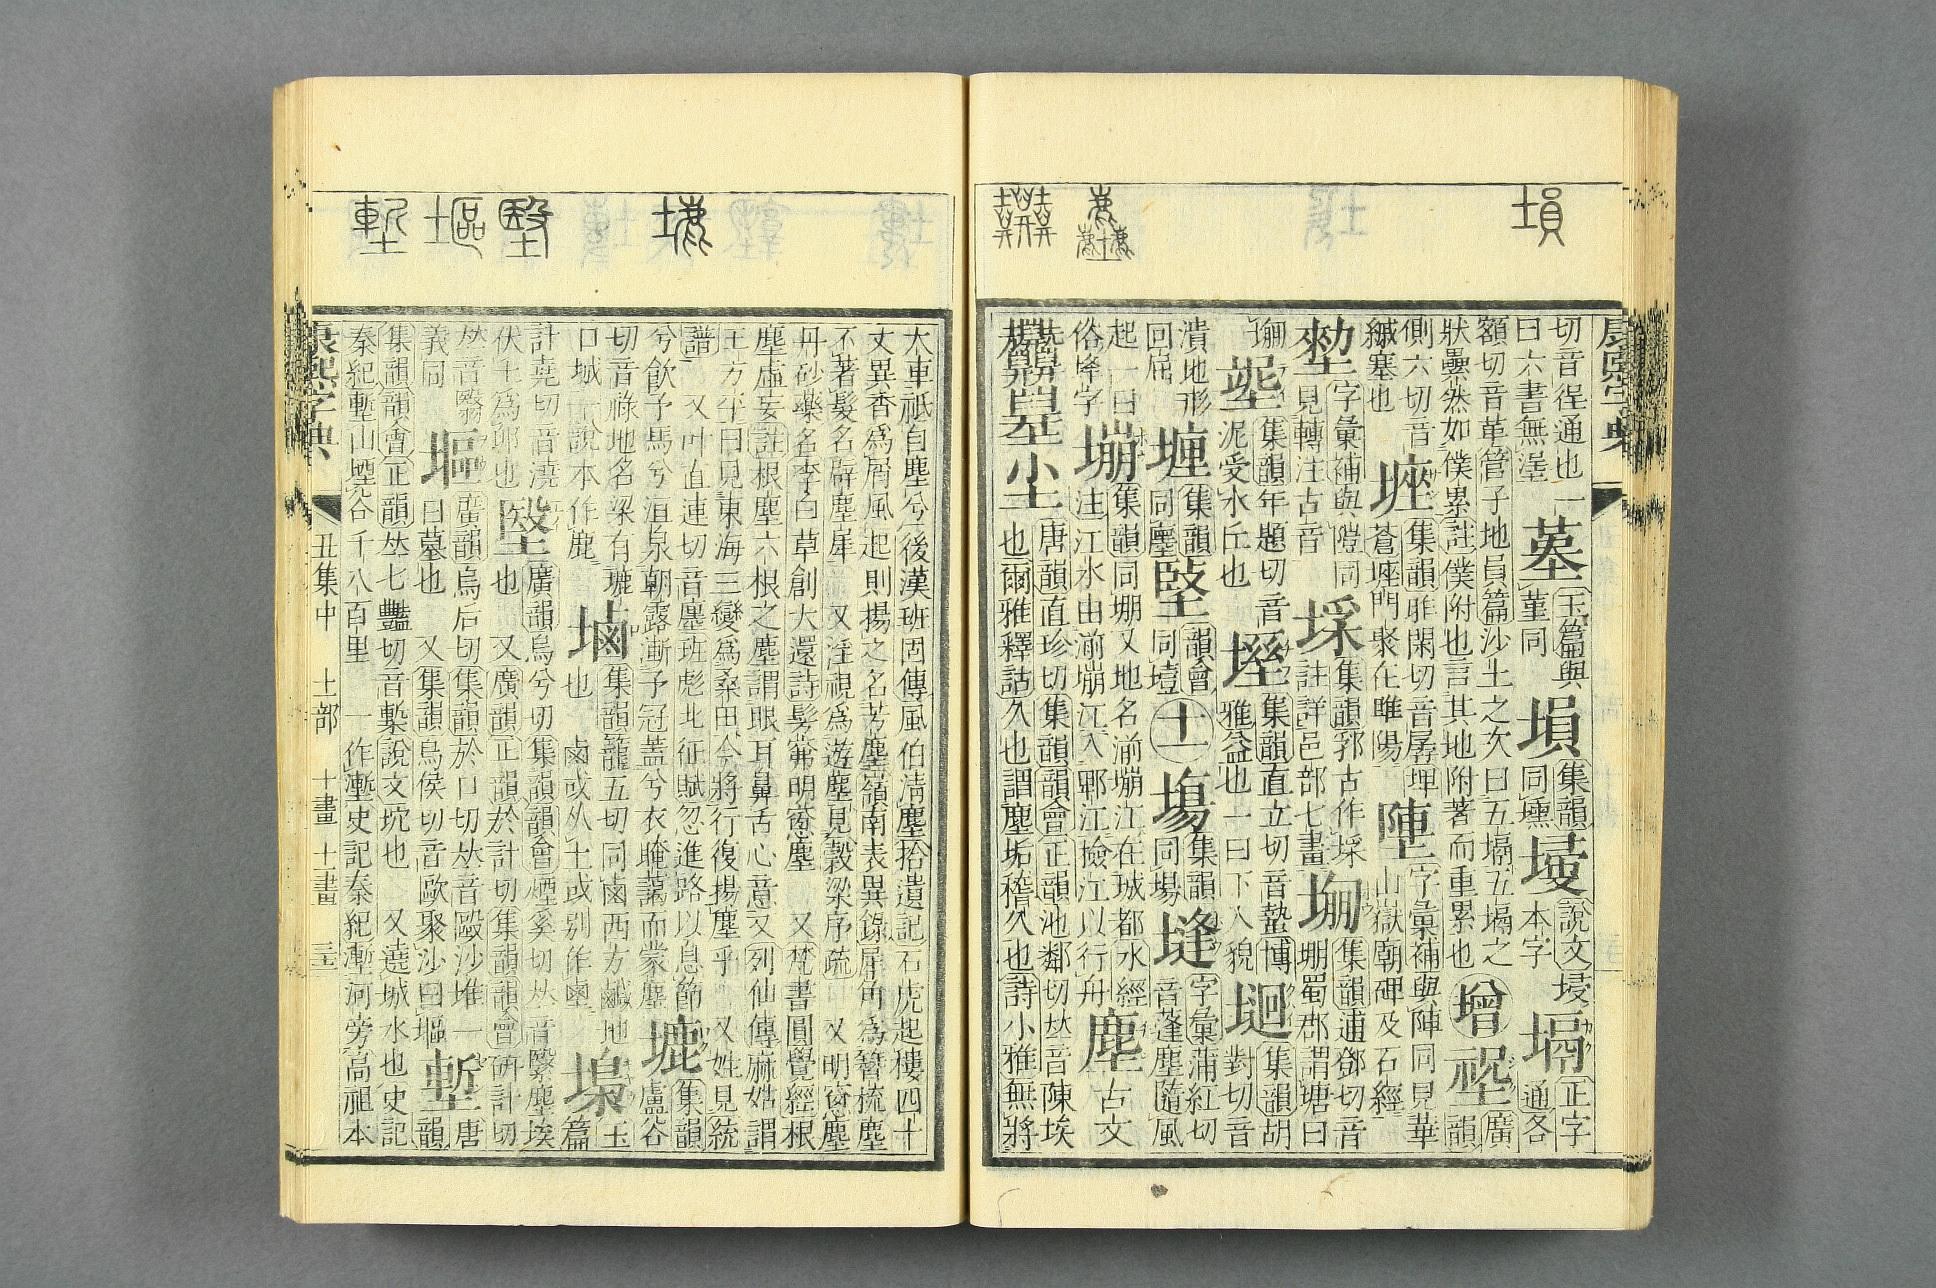 塤
切音徎通也一
曰六書無塣
墓
玉篇與
堇同
塤
集韻
同壎
墁
說文
本字
塥
正字
通各
額切音革管子地員篇沙土之次曰五塥五塥之
狀累然如僕累註僕附也言其地附著而重累也
增
廣
韻
側六切音
緘塞也
集韻昨閑切音孱埋
蒼門聚在睢陽
字彙補與陣同見華
山嶽廟碑及石經
字彙補與塏同
見轉注古音
埰
集韻郭古作埰
註詳邑部七畫
塴
集韻逋鄧切音
堋蜀郡謂塘曰
塴
集韻年題切音
泥受水丘也
集韻直立切音蟄博
雅益也一曰下入貌
集韻胡
對切音
潰地形
回屈
堙
集韻
同壓
韻會
同壹
十一
塲
集韻
同場
塳
字彙蒲紅切
音蓬塵隨風
起一曰
俗埄字
塴
集韻同堋又地名湔塴江在城都水經
注江水由湔塴江入郫江撿江以行舟
塵
古文
唐韻直珍切集韻韻會正韻池鄰切𠀤音陳埃
也爾雅釋詁久也謂塵垢稽久也詩小雅無將
康熙字典
大車祗自塵兮後漢班固傳風伯清塵拾遺記石虎起樓四十
丈異香為屑風起則揚之名芳塵嶺南表異錄犀角為簪梳塵
不著髮名辟塵犀 又淫視為遊塵見穀梁序疏 又明窻塵
丹砂藥名李白草創大還詩髣髴明窻塵 又梵書圓覺經根
塵虛妄註根塵六根之塵謂眼耳鼻舌心意又列仙傳麻姑謂
王方平曰見東海三變為桑田今將行復揚塵乎 又姓見統
譜 又叶直連切音廛班彪北征賦忽進路以息節
兮飲予馬兮洹泉朝露漸予冠蓋兮衣晻藹而蒙塵
塶
集韻
盧谷
切音祿地名梁有塶
口城 說本作鹿
塷
集韻籠五切同鹵西方鹹地
也 鹵或从土或別作
塊
玉
篇
計堯切音澆
伏土為卵也
塈
廣韻烏兮切集韻韻會煙奚切𠀤音鷖塵埃
也 又廣韻正韻於計切集韻韻會研計切
𠀤音翳
義同
塸
廣韻烏后切集韻於口切𠀤音毆沙堆一
曰墓也 又集韻烏侯切音歐聚沙曰塸
塹
唐
韻
集韻韻會正韻𠀤七豔切音槧說文坑也 又遶城水也史記
秦紀塹山堙谷千八百里 一作漸史記秦紀漸河旁高祖本
康熙字典
丑集中 土部 十畫 十一畫
塶
塸
塹